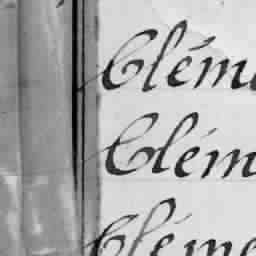 Cléme
Clém
Cléme